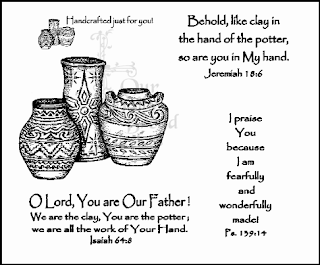 Handcrafted just for you!
Behold, like clay in
the hand of the potter,
so are you in My hand.
Jeremiah 18:6
I praise
You
because
I am
fearfully
and
wonderfully
made!
Ps. 139:14
O Lord, You are Our Father !
We are the clay, You are the potter;
we are all the work of Your Hand.
Isaiah 64:8